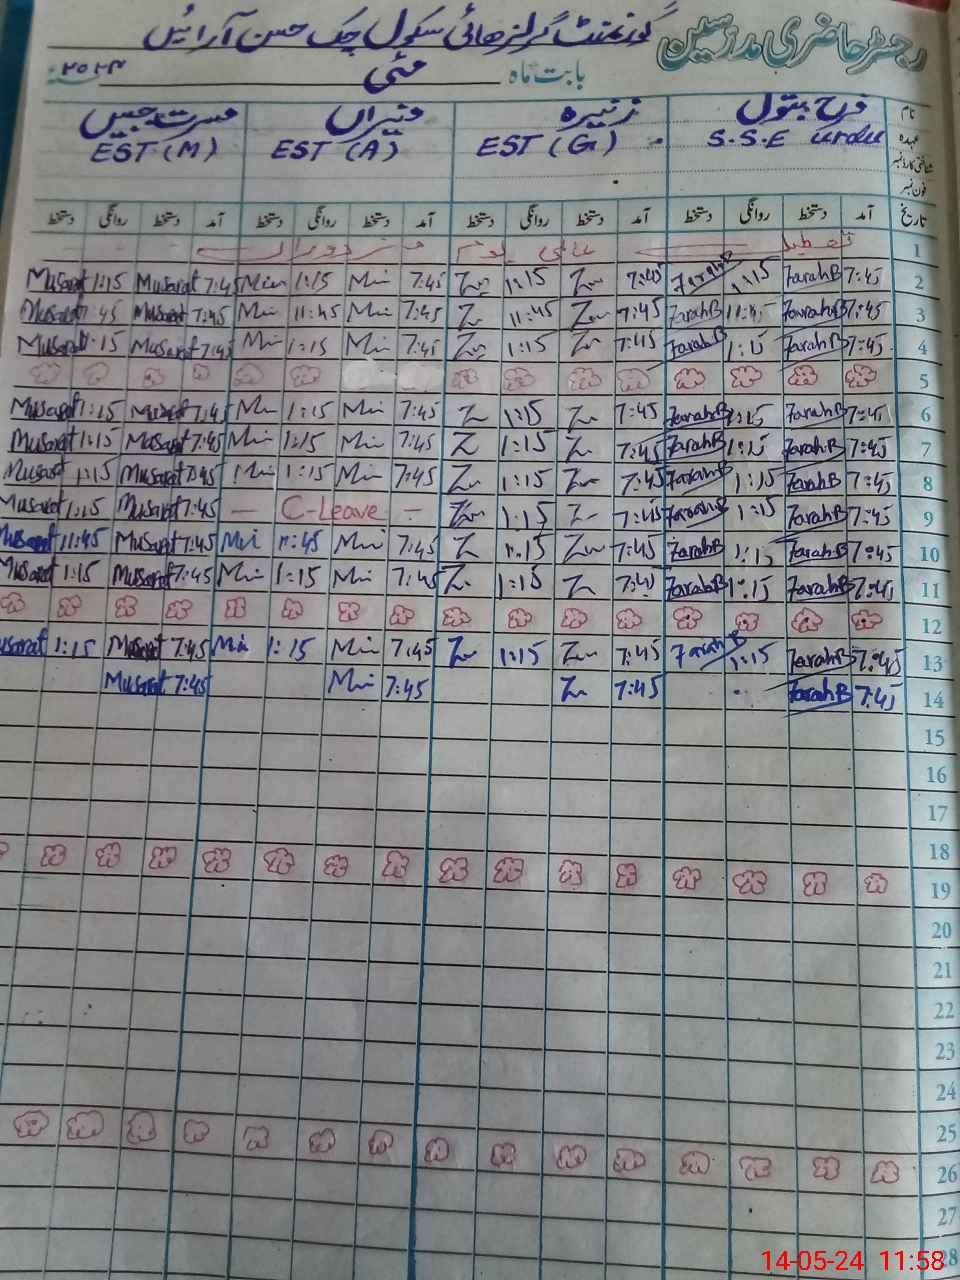 رجسٹر حاضری مدرسین گورنمنٹ گرلز ہائی سکول چک حسن آرائیں
بابت ماہ مئی ۲۰۲۴
نام فرح بتول زنیرہ منیراں مسرت جبیں
عہدہ S.S.E urdu EST (G) EST (A) EST (M)
شناختی کارڈ نمبر
فون نمبر
تاریخ آمد دستخط روانگی دستخط آمد دستخط روانگی دستخط آمد دستخط روانگی دستخط آمد دستخط روانگی دستخط
1 تعطیل عالمی یوم مزدوراں
2 7:45 FarahB 1:15 FarahB 7:45 Zu 1:15 Zu 7:45 Min 1:15 Min 7:45 Musarat 1:15 Musarat
3 7:45 FarahB 11:45 FarahB 7:45 Zu 11:45 Zu 7:45 Min 11:45 Min 7:45 Musarat 45 Musarat
4 7:45 FarahB 1:15 FarahB 7:45 Zu 1:15 Zu 7:45 Min 1:15 Min 7:45 Musarat 1:15 Musarat
5
6 7:45 FarahB 1:15 FarahB 7:45 Zu 1:15 Zu 7:45 Min 1:15 Min 7:45 Musarat 1:15 Musarat
7 7:45 FarahB 1:15 FarahB 7:45 Zu 1:15 Zu 7:45 Min 1:15 Min 7:45 Musarat 1:15 Musarat
8 7:45 FarahB 1:15 FarahB 7:45 Zu 1:15 Zu 7:45 Min 1:15 Min 7:45 Musarat 1:15 Musarat
9 7:45 FarahB 1:15 FarahB 7:45 Zu 1:15 Zu — C-Leave — 7:45 Musarat 1:15 Musarat
10 7:45 FarahB 1:15 FarahB 7:45 Zu 11:15 Zu 7:45 Min 11:45 Min 7:45 Musarat 11:45 Musarat
11 7:45 FarahB 1:15 FarahB 7:45 Zu 1:15 Zu 7:45 Min 1:15 Min 7:45 Musarat 1:15 Musarat
12
13 7:45 FarahB 1:15 FarahB 7:45 Zu 1:15 Zu 7:45 Min 1:15 Min 7:45 Musarat 1:15 Musarat
14 7:45 FarahB 7:45 Zu 7:45 Min 7:45 Musarat
15
16
17
18
19
20
21
22
23
24
25
26
27
28
14-05-24 11:58